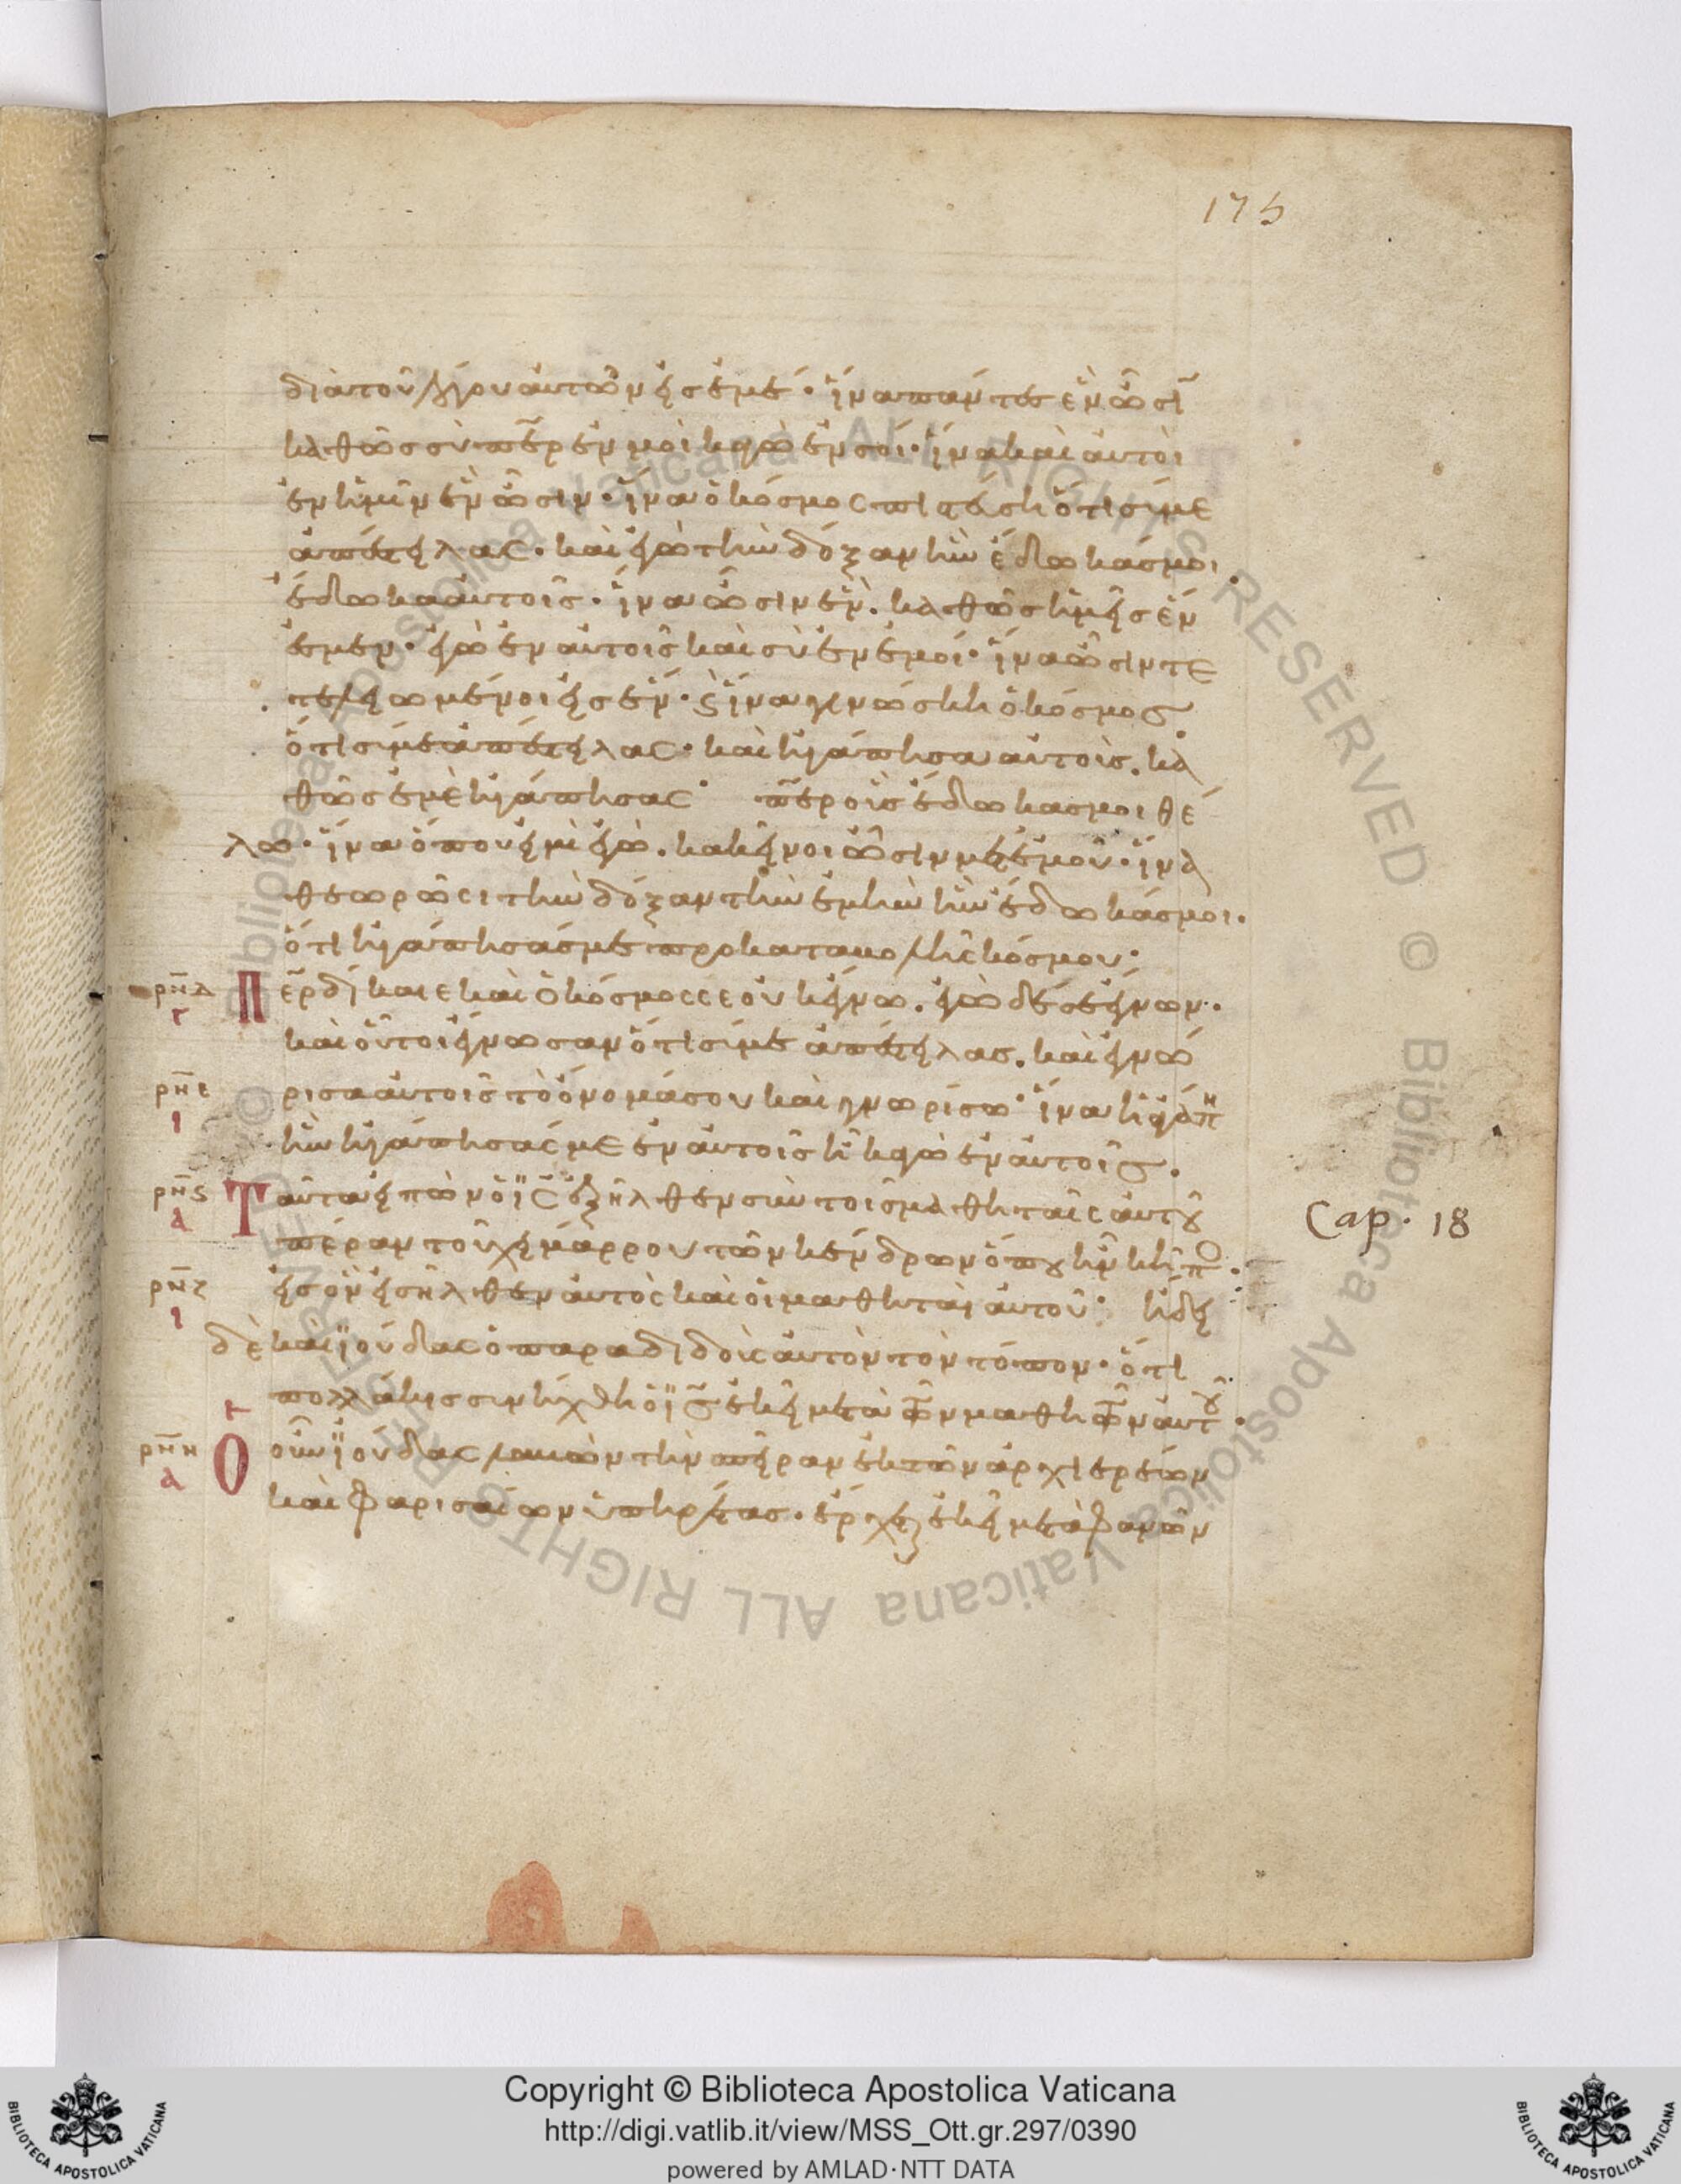 175
διὰ τοῦ λόγου αὐτῶν εἰς ἐμέ· ἵνα πάντες ἓν ὦσῖ
καθὼς σὺ περ ἐν μοὶ κἀγὼ ἐν σοί· ἵνα καὶ αὐτοὶ
ἐν ἡμῖν ἓν ὦσιν· ἵνα ὁ κόσμος πιστεύση ὅτι σύ με
ἀπέστειλας· καὶ ἐγὼ τὴν δόξαν ἣν ἔδωκάς μοι
ἔδωκα αὐτοῖς· ἵνα ὦσιν ἕν· καθὼς ἡμεῖς ἕν
ἐσμεν· ἐγὼ ἐν αὐτοῖς καὶ σὺ ἐν ἐμοί· ἵνα ὦσιν τε
τελειωμένοι εἰς ἕν· ϛ ἵνα γινώσκη ὁ κόσμος
ὅτι σύ με ἀπέστειλας· καὶ ἠγάπησα αὐτοὺς· κα
θὼς ἐμὲ ἠγάπησας· περ οὓς ἔδωκάς μοι θέ
λω· ἵνα ὅπου εἰμὶ ἐγὼ· κακεῖνοι ὦσιν μετ ἐμοῦ· ἵνα
θεωρῶσι τὴν δόξαν τὴν ἐμὴν ἣν ἔδωκάς μοι·
ὅτι ἠγάπησάς με προ καταβολῆς κόσμου·
ρπδ Περ δίκαιε καὶ ὁ κόσμος σε οὐκ ἔγνω· ἐγὼ δέ σε ἔγνων·
γ
καὶ οὗτοι ἔγνωσαν ὅτι σύ με ἀπέστειλας· καὶ ἐγνώ
ρπε ρισα αὐτοῖς τὸ ὄνομά σου καὶ γνωρίσω· ἵνα ἡ ἀγάπη
ι
ἣν ἠγάπησάς με ἐν αὐτοῖς ἦ κἀγὼ ἐν αὐτοῖς·
ρπϛ Ταῦτα εἰπὼν ὁ ις ἐξῆλθεν σὺν τοῖς μαθηταῖς αὐτοῦ
α
Cap. 18
πέραν τοῦ χειμάρρου τῶν κένδρων ὅπου ἦν κηπο·
ρπζ εἰς ὃν εἰσῆλθεν αὐτὸς καὶ οἱ μαθηταὶ αὐτοῦ· ἤδει
ι
δὲ καὶ ϊούδας ὁ παραδιδοὺς αὐτὸν τὸν τόπον· ὅτι
πολλάκις συνήχθη ὁ ις ἐκεῖ μετὰ τῶν μαθητῶν αὐτοῦ·
ρπη Ὁ οὖν ϊούδας λαβὼν τὴν σπεῖραν ἐκ τῶν ἀρχιερέων
α
καὶ φαρισαίων ὑπηρέτας· ἔρχεται ἐκεῖ μετὰ φανῶν
Copyright © Biblioteca Apostolica Vaticana
http://digi.vatlib.it/view/MSS_Ott.gr.297/0390
powered by AMLAD·NTT DATA
BIBLIOTECA APOSTOLICA VATICANA
BIBLIOTECA APOSTOLICA VATICANA
© Biblioteca Apostolica Vaticana ALL RIGHTS RESERVED © Biblioteca Apostolica Vaticana ALL RIGHTS RESERVED